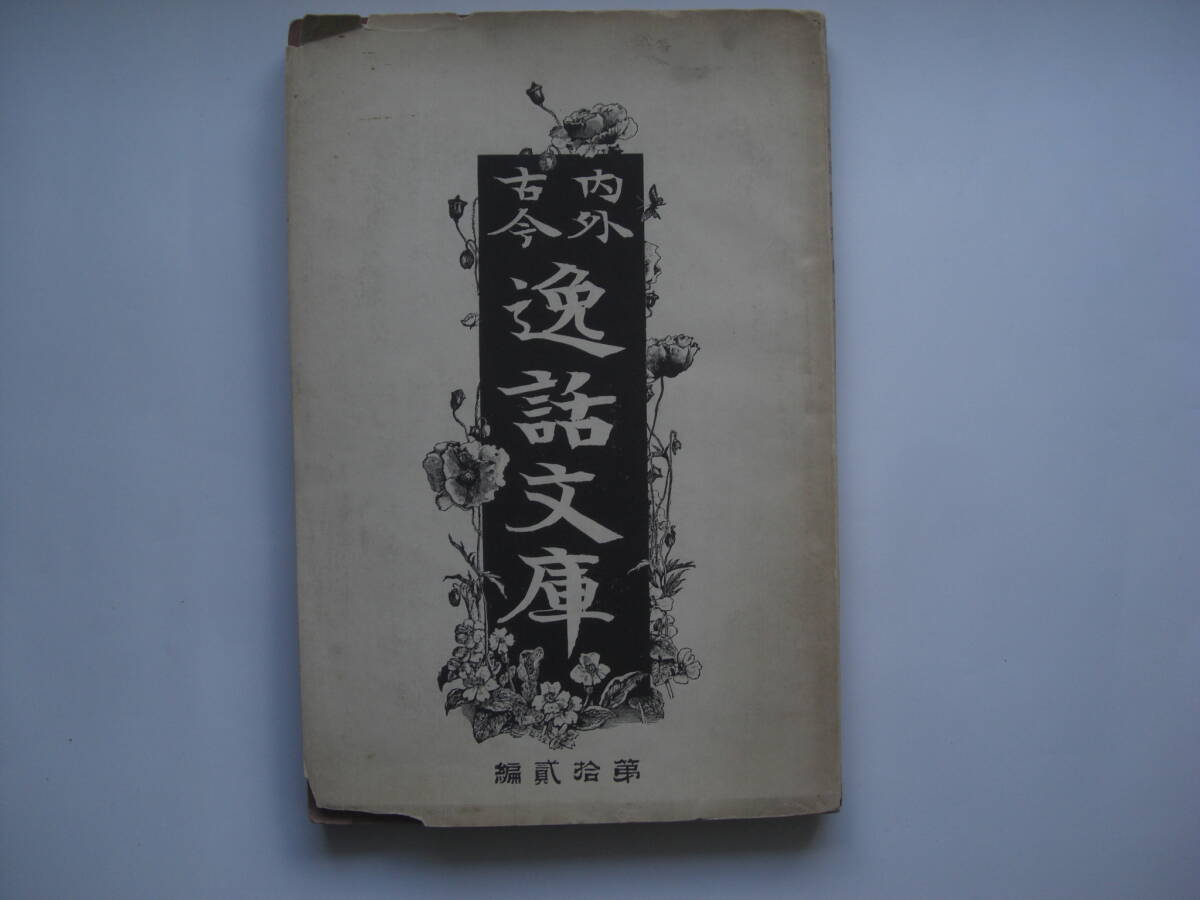 内外
古今
逸話文庫
第拾貳編